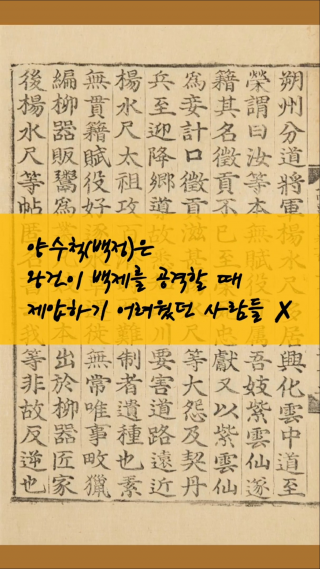 양수척(백정)은
왕건이 백제를 공격할 때
제압하기 어려웠던 사람들 X
朔州分道將軍楊水尺居興化雲中道至
榮謂曰汝等本無賦役屬吾妓紫雲仙遂
籍其名徵貢不已至忠獻又以紫雲仙
爲妾計口徵貢滋甚等大怨及契丹
兵至迎降鄉道故川要害道路遠近
楊水尺太祖攻難制者遺種也素
無貫籍賦役好逐徙無常唯事畋獵
編柳器販鬻爲本出於柳器匠家
後楊水尺等帖匿我等非故反逆也